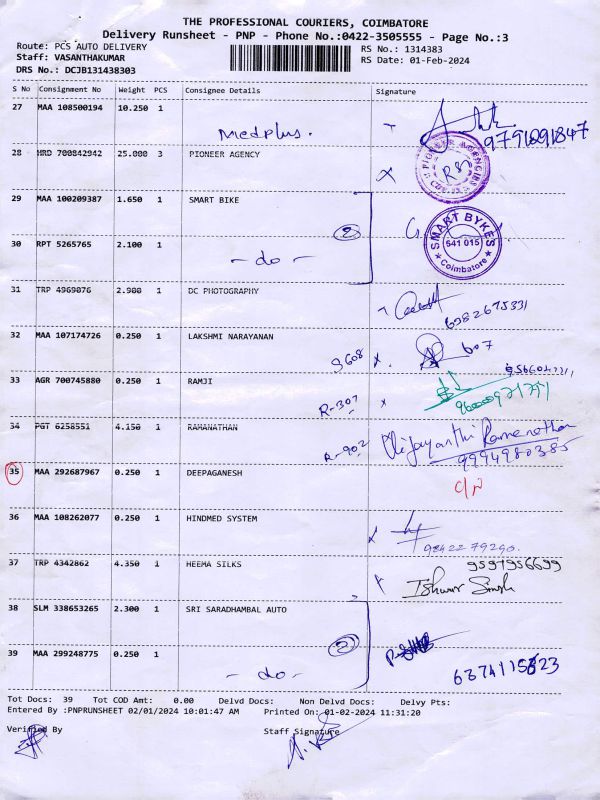 THE PROFESSIONAL COURIERS, COIMBATORE
Delivery Runsheet - PNP - Phone No.:0422-3505555 - Page No.:3
Route: PCS AUTO DELIVERY RS No.: 1314383
Staff: VASANTHAKUMAR RS Date: 01-Feb-2024
DRS No.: DCJB131438303
S No Consignment No Weight PCS Consignee Details Signature
27 MAA 108500194 10.250 1
Medplus. 9791091847
28 HRD 700842942 25.000 3 PIONEER AGENCY
PIONEER AGENCIES
29 MAA 100209387 1.650 1 SMART BIKE
2 SMART BYKES 641 015 Coimbatore
30 RPT 5265765 2.100 1
- do -
31 TRP 4969076 2.900 1 DC PHOTOGRAPHY
32 MAA 107174726 0.250 1 LAKSHMI NARAYANAN
607
33 AGR 700745880 0.250 1 RAMJI
R-307
34 PGT 6258551 4.150 1 RAMANATHAN
R-902 Vijayanthi Ramanathan
9994980385
35 MAA 292687967 0.250 1 DEEPAGANESH
C/N
36 MAA 108262077 0.250 1 HINDMED SYSTEM
9842279290.
37 TRP 4342862 4.350 1 HEEMA SILKS 9597956699
Ishwar Singh
38 SLM 338653265 2.300 1 SRI SARADHAMBAL AUTO
2
39 MAA 299248775 0.250 1
- do -
Tot Docs: 39 Tot COD Amt: 0.00 Delvd Docs: Non Delvd Docs: Delvy Pts:
Entered By :PNPRUNSHEET 02/01/2024 10:01:47 AM Printed On: 01-02-2024 11:31:20
Verified By Staff Signature